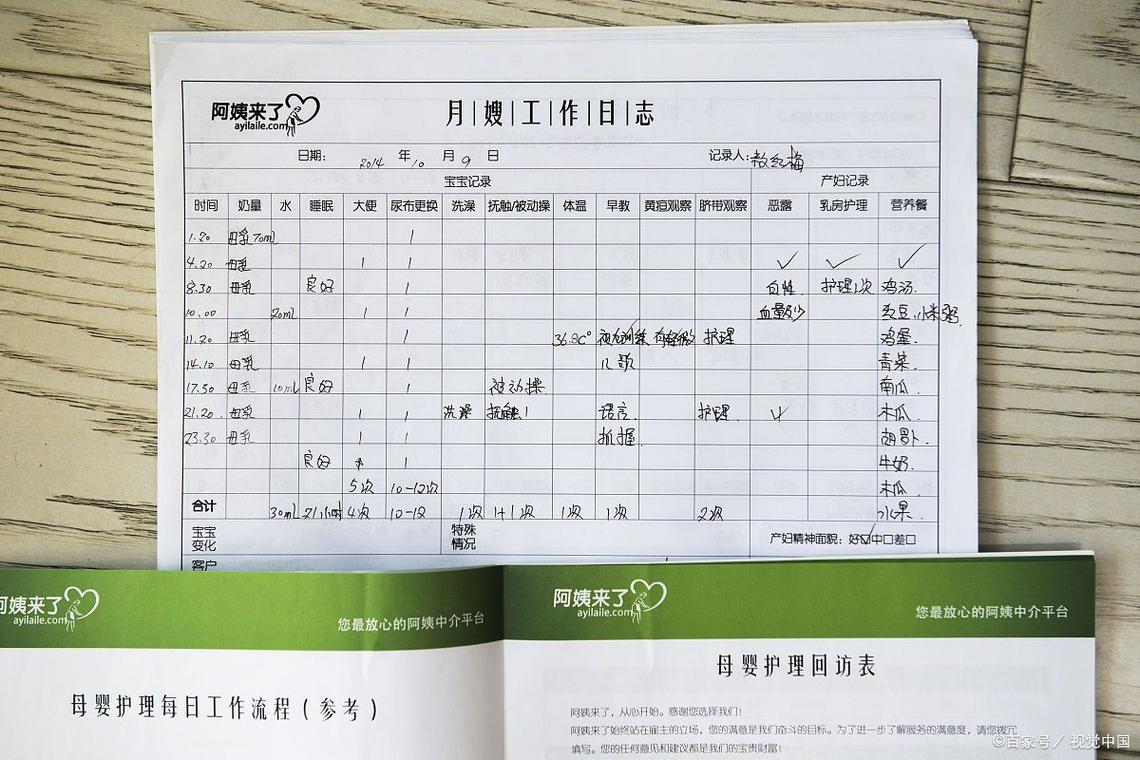 阿姨来了
ayilaile.com
月|嫂|工|作|日|志
日期: 2014 年 10 月 9 日 记录人:
宝宝记录 产妇记录
时间 奶量 水 睡眠 大便 尿布更换 洗澡 抚触/被动操 体温 早教 黄疸观察 脐带观察 恶露 乳房护理 营养餐
1.20 母乳70ml 1
4.20 母乳 1 1 ✓ ✓ ✓
8.30 母乳 良好 1 护理1次 鸡汤.
10.00 20ml 1 1 血量少 红豆.小米粥.
11.20 母乳 1 36.8C° 护理 鸡蛋.
14.10 母乳 1 1 儿歌 青菜.
17.30 母乳 10ml 良好 1 被动操. 南瓜.
21.20. 母乳 1 1 洗澡 抚触1 语言. 护理. 木瓜.
23.30 母乳 1 1 抓握. 胡萝卜.
良好 1 牛奶.
5次 10-12次 木瓜.
合计 30ml 21小时 4次 10-12 1次 1+1次 1次 1次 2次 水果.
宝宝变化 特殊情况 产妇精神面貌: 好☑中□差□
客户
阿姨来了
ayilaile.com
您最放心的阿姨中介平台
母婴护理每日工作流程(参考)
阿姨来了
ayilaile.com
您最放心的阿姨中介平台
母婴护理回访表
阿姨来了,从心开始。感谢您选择我们!
阿姨来了始终站在雇主的立场,您的满意是我们奋斗的目标。为了进一步了解服务的满意度,请您拨冗
填写。您的任何意见和建议都是我们的宝贵财富!
©百家号/视觉中国